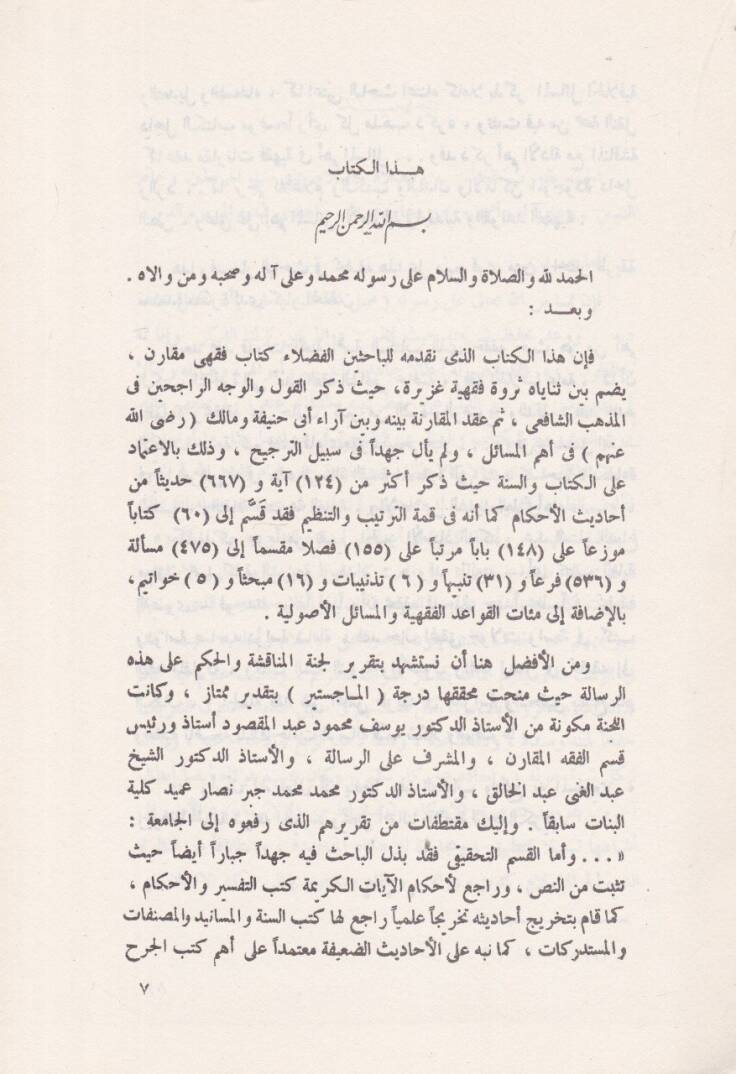 هـذا الكتاب
بسم الله الرحمن الرحيم
الحمد لله والصلاة والسلام على رسوله محمد وعلى آله وصحبه ومن والاه .
وبعـد :
فإن هذا الكتاب الذى نقدمه للباحثين الفضلاء كتاب فقهى مقارن ،
يضم بين ثناياه ثروة فقهية غزيرة، حيث ذكر القول والوجه الراجحين فى
المذهب الشافعى ، ثم عقد المقارنة بينه وبين آراء أبى حنيفة ومالك ( رضى الله
عنهم ) فى أهم المسائل ، ولم يأل جهداً فى سبيل الترجيح ، وذلك بالاعتماد
على الكتاب والسنة حيث ذكر أكثر من (١٢٤) آية و (٦٦٧) حديثاً من
أحاديث الأحكام كما أنه فى قمة الترتيب والتنظيم فقد قَسَّم إلى (٦٠) كتاباً
موزعاً على (١٤٨) باباً مرتباً على (١٥٥) فصلا مقسماً إلى (٤٧٥) مسألة
و (٥٣٦) فرعاً و (٣١) تنبيهاً و ( ٦ ) تذنيبات و (١٦) مبحثاً و ( ٥ ) خواتيم،
بالإضافة إلى مئات القواعد الفقهية والمسائل الأصولية .
ومن الأفضل هنا أن نستشهد بتقرير لجنة المناقشة والحكم على هذه
الرسالة حيث منحت محققها درجة ( المـاجستير ) بتقدير ممتاز ، وكانت
اللجنة مكونة من الأستاذ الدكتور يوسف محمود عبد المقصود أستاذ ورئيس
قسم الفقه المقارن ، والمشرف على الرسالة ، والأستاذ الدكتور الشيخ
عبد الغنى عبد الخالق ، والأستاذ الدكتور محمد محمد جبر نصار عميد كلية
البنات سابقاً . وإليك مقتطفات من تقريرهم الذى رفعوه إلى الجامعة :
« ... وأما القسم التحقيقى فقد بذل الباحث فيه جهداً جباراً أيضاً حيث
تثبت من النص ، وراجع لأحكام الآيات الكريمة كتب التفسير والأحكام ،
كما قام بتخريج أحاديثه تخريجاً علمياً راجع لها كتب السنة والمسانيد والمصنفات
والمستدركات ، كما نبه على الأحاديث الضعيفة معتمداً على أهم كتب الجرح
٧